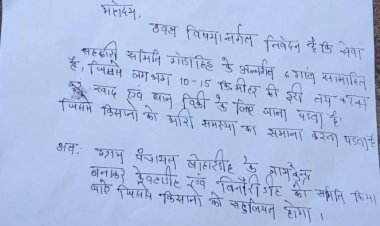 महोदय,
उक्त विषयान्तर्गत निवेदन है कि सेवा
सहकारी समिति गोडाडिह के अन्तर्गत 6 गांव सामाहित
है, जिसमे लगभग 10-15 कि मीटर की दूरी तय करना
खाद एवं धान बिक्री के लिए जाना पडता है।
जिसमे किसानो को भारी समस्या का समाना करना पडता है
अतः ग्राम पंचायत बोहारडीह के
बनाकर देवगडीह एवं बिनौरीडीह को समिति किया
जावे जिससे किसानो को सहुलियत होगा।